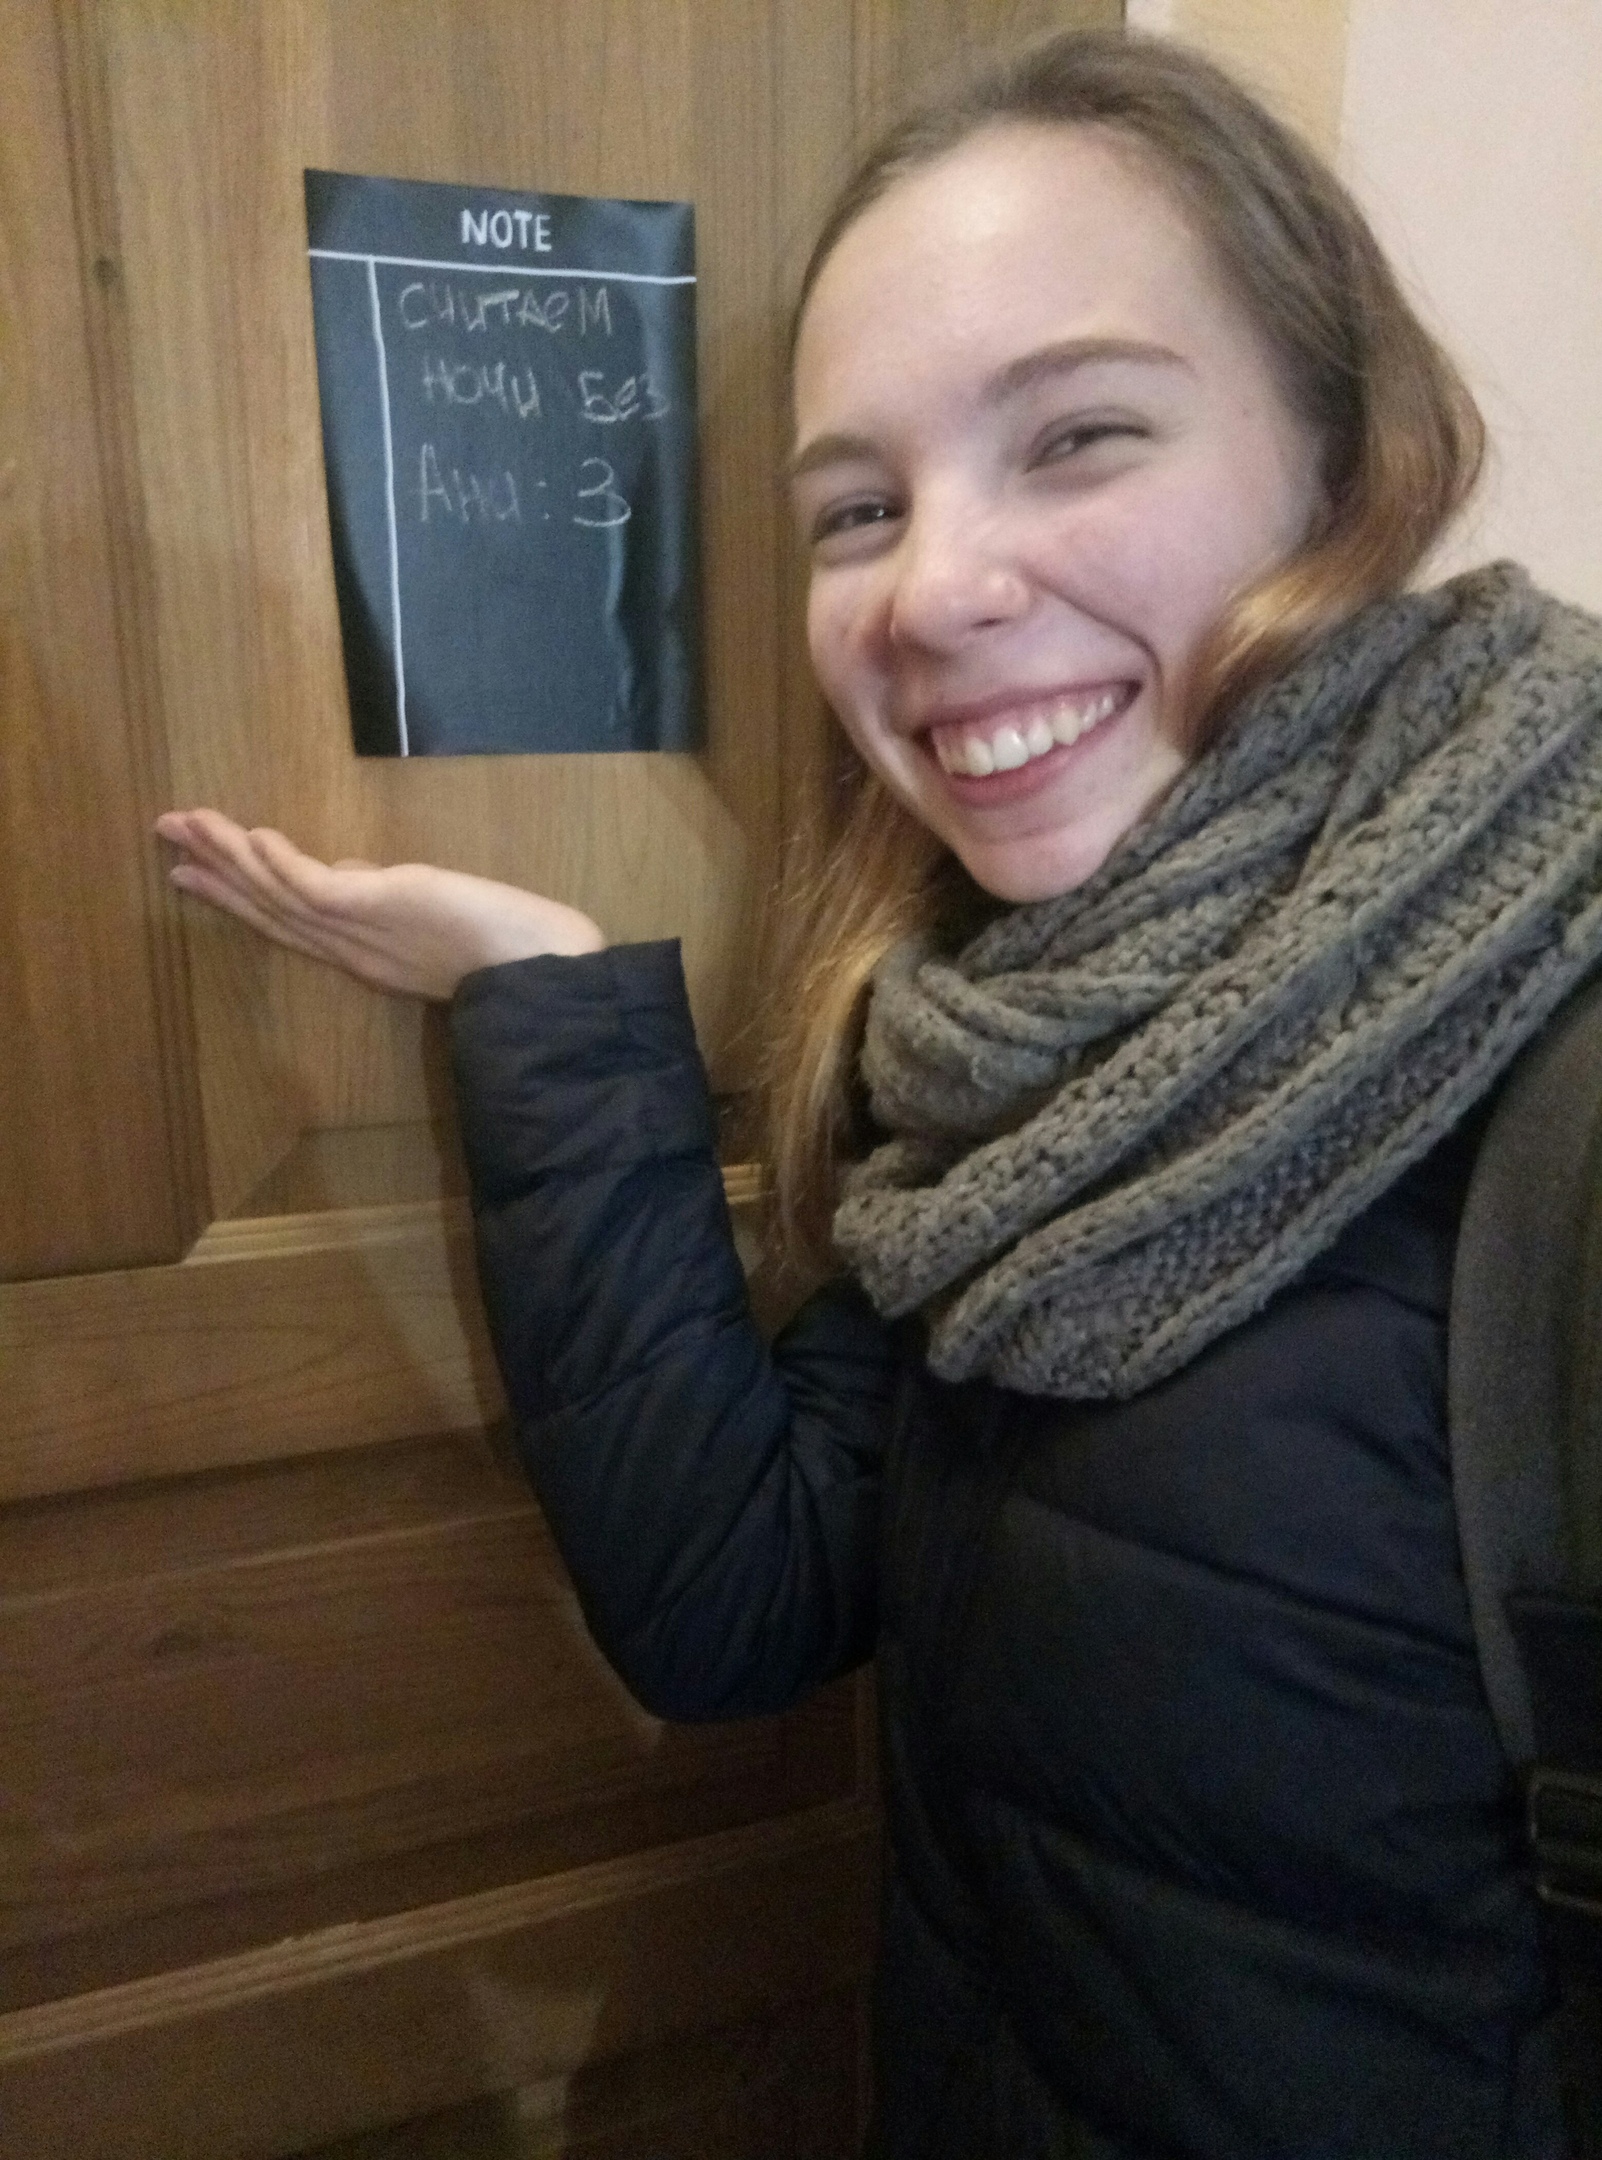 NOTE
СЧИТАеМ
НОЧИ БеЗ
АНИ: 3